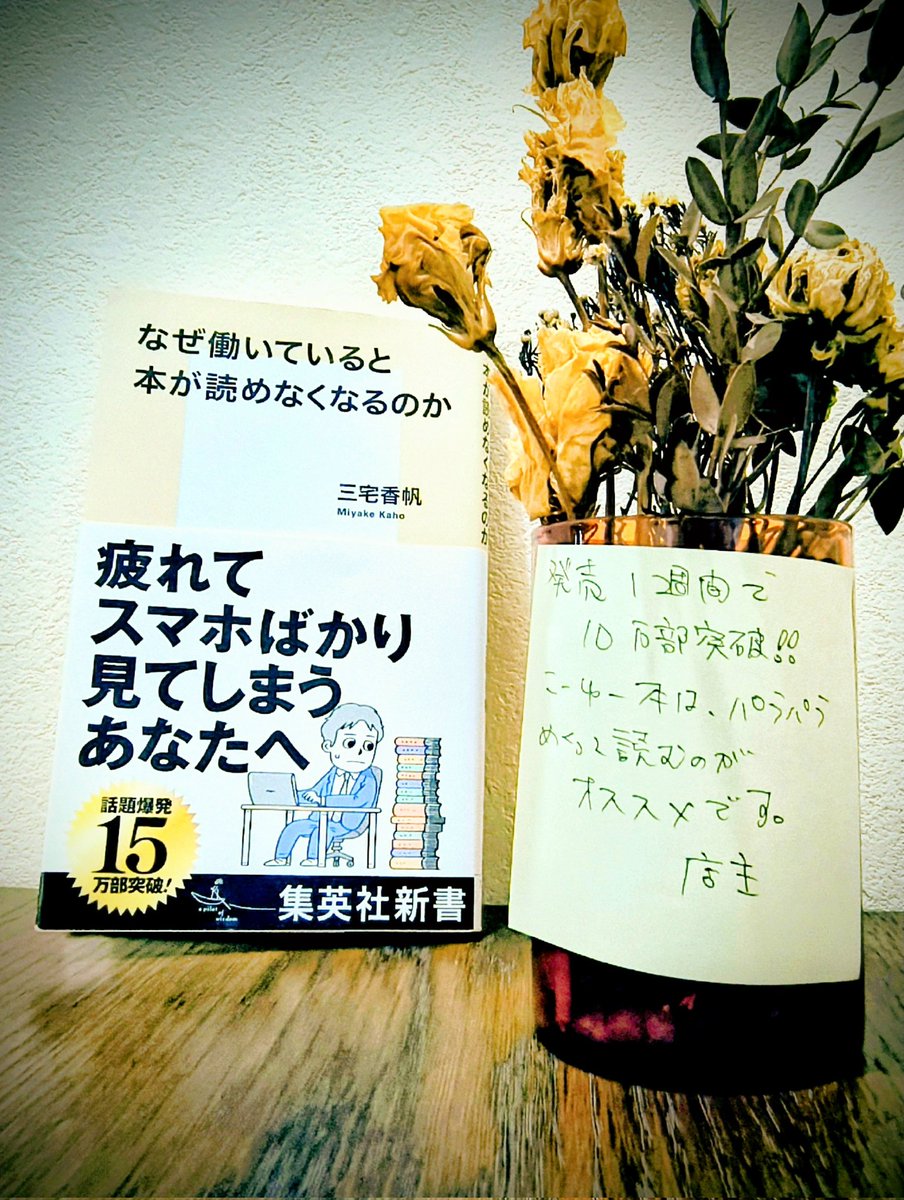 なぜ働いていると
本が読めなくなるのか
三宅香帆
Miyake Kaho
疲れて
スマホばかり
見てしまう
あなたへ
話題爆発
15
万部突破!
a pilot of wisdom
集英社新書
発売1週間で
10万部突破!!
こーゆー本は、パラパラ
めくって読むのが
オススメです。
店主